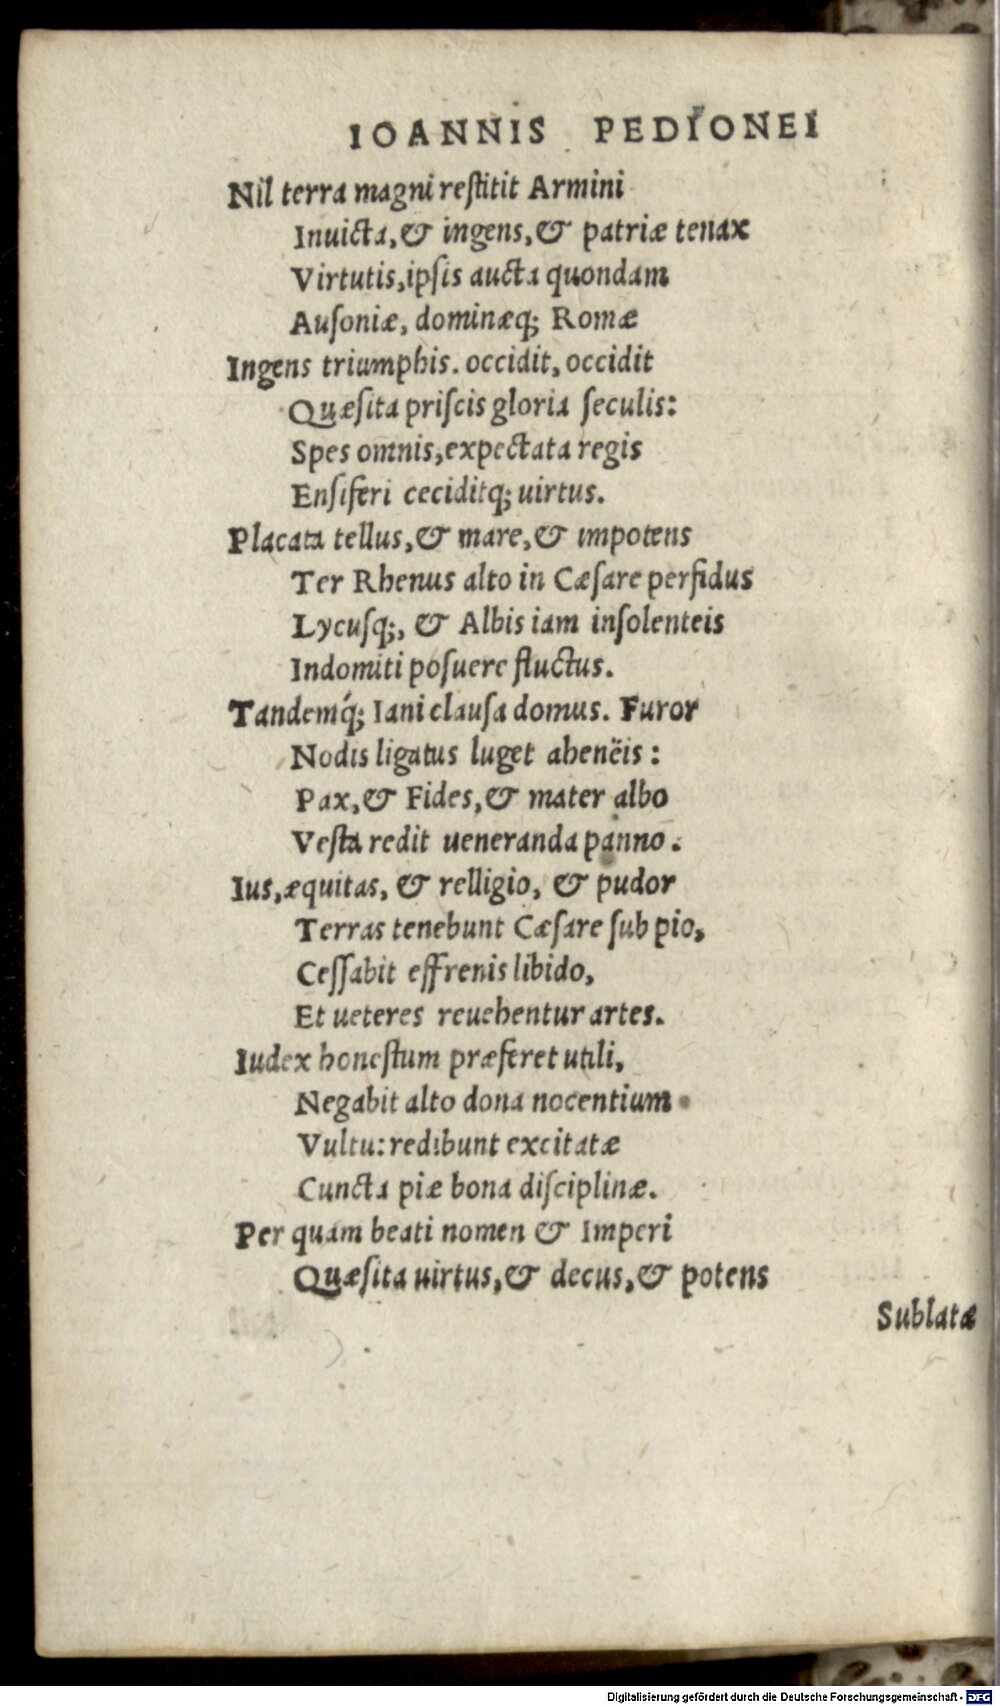 IOANNIS PEDIONEI
Nil terra magni reſtitit Armini
Inuicta, & ingens, & patriæ tenax
Virtutis, ipſis aucta quondam
Auſoniæ, dominæq; Romæ
Ingens triumphis. occidit, occidit
Quæſita priſcis gloria ſeculis:
Spes omnis, expectata regis
Enſiferi ceciditq; uirtus.
Placata tellus, & mare, & impotens
Ter Rhenus alto in Cæſare perfidus
Lycuſq;, & Albis iam inſolenteis
Indomiti poſuere fluctus.
Tandemq́; Iani clauſa domus. Furor
Nodis ligatus luget ahenëis:
Pax, & Fides, & mater albo
Veſta redit ueneranda panno.
Ius, æquitas, & relligio, & pudor
Terras tenebunt Cæſare ſub pio,
Ceſſabit effrenis libido,
Et ueteres reuehentur artes.
Iudex honeſtum præferet utili,
Negabit alto dona nocentium
Vultu: redibunt excitatæ
Cuncta piæ bona diſciplinæ.
Per quam beati nomen & Imperi
Quæſita uirtus, & decus, & potens
Sublatæ
Digitalisierung gefördert durch die Deutsche Forschungsgemeinschaft - DFG